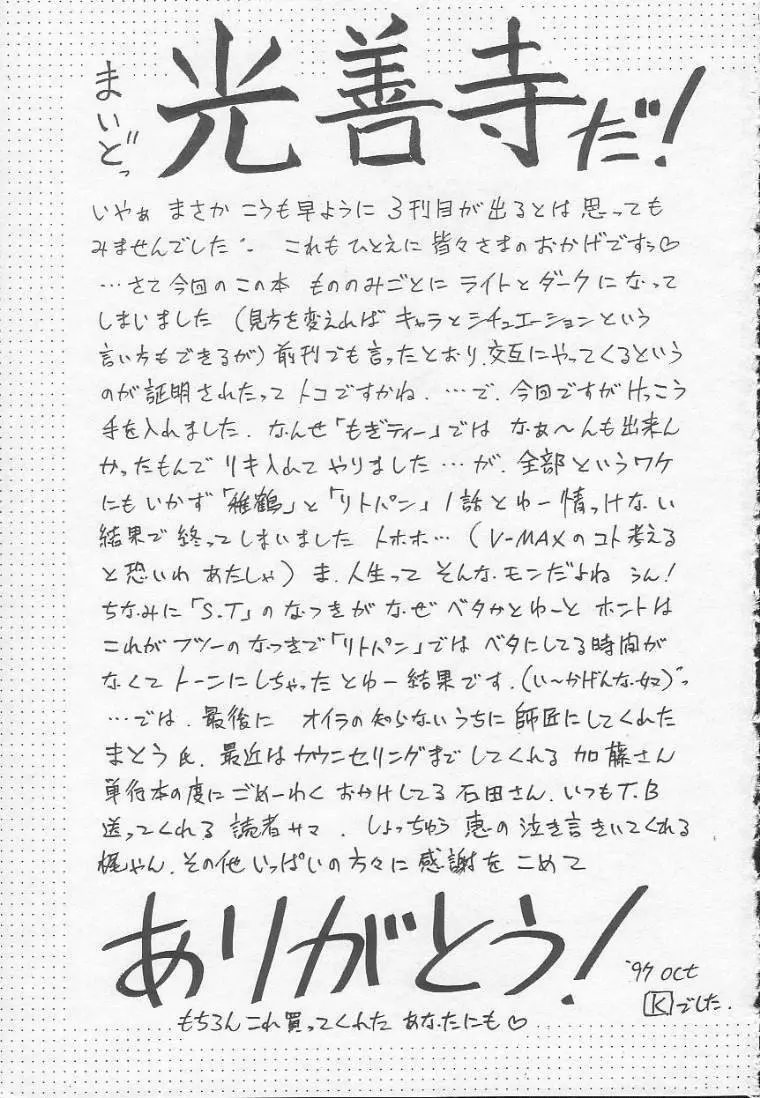 まいどっ
光善寺だ!
いやぁ まさか こうも早ように 3刊目が出るとは 思っても
みませんでした∵ これもひとえに皆々さまのおかげですぅ♡
…さて今回のこの本 もののみごとに ライトとダークになって
しまいました (見方を変えれば キャラとシチュエーションという
言い方もできるが) 前刊でも言ったとおり、交互にやってくるという
のが証明されたって トコですかね. …で. 今回ですがけっこう
手を入れました. なんせ「もぎティー」では なぁ〜んも出来ん
かったもんで リキ入れて やりました …が. 全部というワケ
にもいかず「雅鶴」と「リトパン」1話とゆー情っけない
結果で終ってしまいました トホホ… (V-MAXのコト考える
と恐いわ あたしゃ) ま.人生って そんなモンだよね うん!
ちなみに「S.T」のなつきが なぜ ベタかとゆーと ホントは
これがフツーのなつきで「リトパン」では ベタにしてる時間が
なくて トーンにしちゃった とゆー結果です.(い〜かげんな奴)
…では. 最後に オイラの知らないうちに師匠にしてくれた
まとう氏. 最近はカウンセリングまでしてくれる 加藤さん
単行本の度にごめーわく おかけしてる 石田さん. いつもT.B
送ってくれる 読者サマ. しょっちゅう 恵の泣き言きいてくれる
梶やん. その他いっぱいの方々に 感謝を こめて
ありがとう!
'97 oct
Kでした.
もちろん これ買ってくれた あなたにも♡